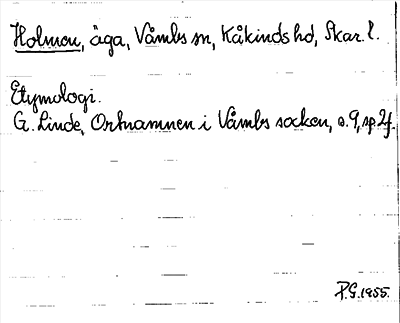 Holmen, äga, Våmbs sn, Kåkinds hd, Skar. l.
Etymologi.
G. Linde, Ortnamnen i Våmbs socken, s. 9, sp. 2f.
P.G. 1955.